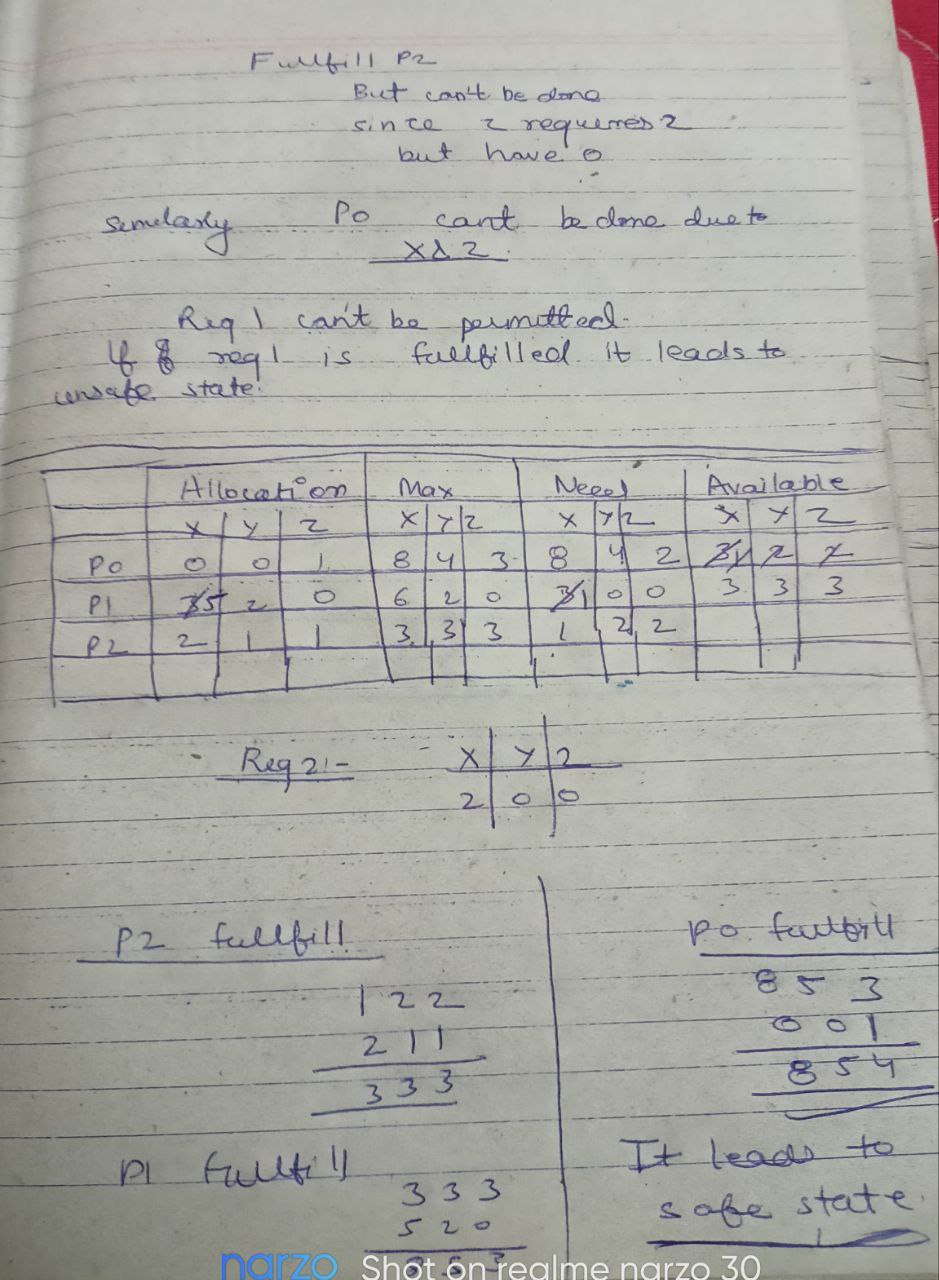 Fullfill P2
But can't be done
since z requires 2
but have 0
Similarly P0 cant be done due to
X & Z.
Req 1 can't be permitted.
If req 1 is fullfilled it leads to
unsafe state.
Allocation Max Need Available
X Y Z X Y Z X Y Z X Y Z
P0 0 0 1 8 4 3 8 4 2 3 1 2 2
P1 3 5 2 0 6 2 0 3 1 0 0 3 3 3
P2 2 1 1 3 3 3 1 2 2
Req 2:- X Y Z
2 0 0
P2 fullfill
1 2 2
2 1 1
3 3 3
P1 fullfill
3 3 3
5 2 0
8 5 3
P0 fullfill
8 5 3
0 0 1
8 5 4
It leads to
safe state.
narzo Shot on realme narzo 30